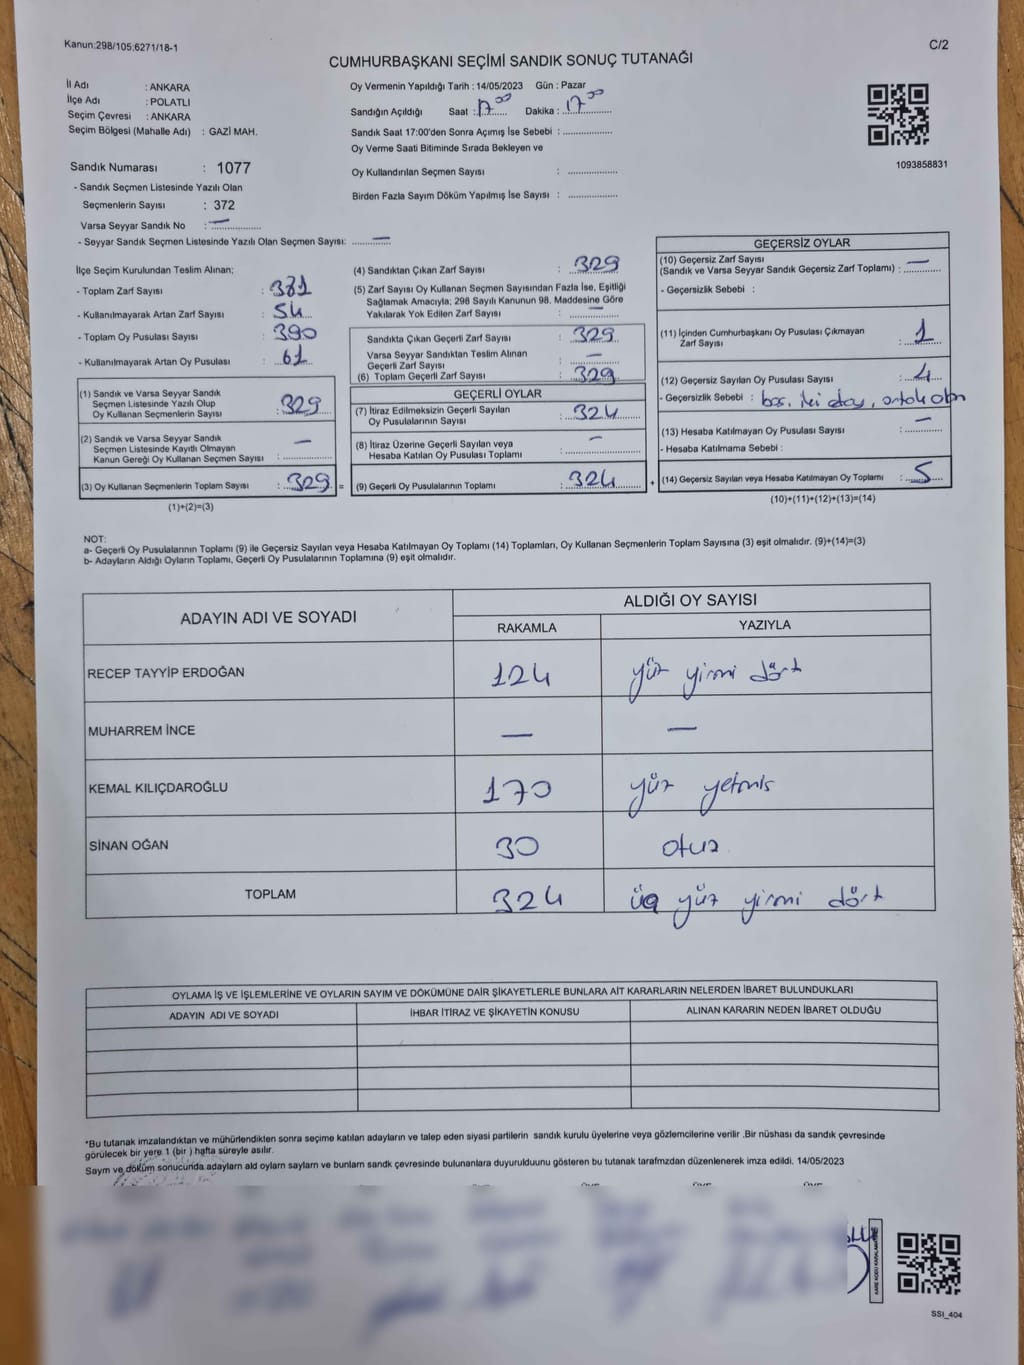 Kanun:298/105;6271/18-1
C/2
CUMHURBAŞKANI SEÇİMİ SANDIK SONUÇ TUTANAĞI
İl Adı : ANKARA
İlçe Adı : POLATLI
Seçim Çevresi : ANKARA
Seçim Bölgesi (Mahalle Adı) : GAZİ MAH.
Oy Vermenin Yapıldığı Tarih : 14/05/2023 Gün : Pazar
Sandığın Açıldığı Saat : 17.00 Dakika : 17.00
Sandık Saat 17:00'den Sonra Açımış İse Sebebi :
Oy Verme Saati Bitiminde Sırada Bekleyen ve
Oy Kullandırılan Seçmen Sayısı :
Birden Fazla Sayım Döküm Yapılmış İse Sayısı :
1093858831
Sandık Numarası : 1077
- Sandık Seçmen Listesinde Yazılı Olan
Seçmenlerin Sayısı : 372
Varsa Seyyar Sandık No : —
- Seyyar Sandık Seçmen Listesinde Yazılı Olan Seçmen Sayısı: —
İlçe Seçim Kurulundan Teslim Alınan;
- Toplam Zarf Sayısı : 381
- Kullanılmayarak Artan Zarf Sayısı : 54
- Toplam Oy Pusulası Sayısı : 390
- Kullanılmayarak Artan Oy Pusulası : 61
(1) Sandık ve Varsa Seyyar Sandık
Seçmen Listesinde Yazılı Olup
Oy Kullanan Seçmenlerin Sayısı : 329
(2) Sandık ve Varsa Seyyar Sandık
Seçmen Listesinde Kayıtlı Olmayan
Kanun Gereği Oy Kullanan Seçmen Sayısı : —
(3) Oy Kullanan Seçmenlerin Toplam Sayısı : 329 =
(1)+(2)=(3)
(4) Sandıktan Çıkan Zarf Sayısı : 329
(5) Zarf Sayısı Oy Kullanan Seçmen Sayısından Fazla İse, Eşitliği
Sağlamak Amacıyla; 298 Sayılı Kanunun 98. Maddesine Göre
Yakılarak Yok Edilen Zarf Sayısı : —
Sandıkta Çıkan Geçerli Zarf Sayısı : 329
Varsa Seyyar Sandıktan Teslim Alınan
Geçerli Zarf Sayısı : —
(6) Toplam Geçerli Zarf Sayısı : 329
GEÇERLİ OYLAR
(7) İtiraz Edilmeksizin Geçerli Sayılan
Oy Pusulalarının Sayısı : 324
(8) İtiraz Üzerine Geçerli Sayılan veya
Hesaba Katılan Oy Pusulası Toplamı : —
(9) Geçerli Oy Pusulalarının Toplamı : 324 +
GEÇERSİZ OYLAR
(10) Geçersiz Zarf Sayısı
(Sandık ve Varsa Seyyar Sandık Geçersiz Zarf Toplamı) : —
- Geçersizlik Sebebi :
(11) İçinden Cumhurbaşkanı Oy Pusulası Çıkmayan
Zarf Sayısı : 1
(12) Geçersiz Sayılan Oy Pusulası Sayısı : 4
- Geçersizlik Sebebi : boş, iki oy,
(13) Hesaba Katılmayan Oy Pusulası Sayısı : —
- Hesaba Katılmama Sebebi :
(14) Geçersiz Sayılan veya Hesaba Katılmayan Oy Toplamı : 5
(10)+(11)+(12)+(13)=(14)
NOT:
a- Geçerli Oy Pusulalarının Toplamı (9) ile Geçersiz Sayılan veya Hesaba Katılmayan Oy Toplamı (14) Toplamları, Oy Kullanan Seçmenlerin Toplam Sayısına (3) eşit olmalıdır. (9)+(14)=(3)
b- Adayların Aldığı Oyların Toplamı, Geçerli Oy Pusulalarının Toplamına (9) eşit olmalıdır.
ADAYIN ADI VE SOYADI
ALDIĞI OY SAYISI
RAKAMLA YAZIYLA
RECEP TAYYİP ERDOĞAN 124 yüz yirmi dört
MUHARREM İNCE — —
KEMAL KILIÇDAROĞLU 170 yüz yetmiş
SİNAN OĞAN 30 otuz
TOPLAM 324 üç yüz yirmi dört
OYLAMA İŞ VE İŞLEMLERİNE VE OYLARIN SAYIM VE DÖKÜMÜNE DAİR ŞİKAYETLERLE BUNLARA AİT KARARLARIN NELERDEN İBARET BULUNDUKLARI
ADAYIN ADI VE SOYADI İHBAR İTİRAZ VE ŞİKAYETİN KONUSU ALINAN KARARIN NEDEN İBARET OLDUĞU
*Bu tutanak imzalandıktan ve mühürlendikten sonra seçime katılan adayların ve talep eden siyasi partilerin sandık kurulu üyelerine veya gözlemcilerine verilir .Bir nüshası da sandık çevresinde
görülecek bir yere 1 (bir ) hafta süreyle asılır.
Saym ve döküm sonucunda adaylarn ald oylarn saylarn ve bunlarn sandk çevresinde bulunanlara duyurulduunu gösteren bu tutanak tarafmzdan düzenlenerek imza edildi. 14/05/2023
SSI_404